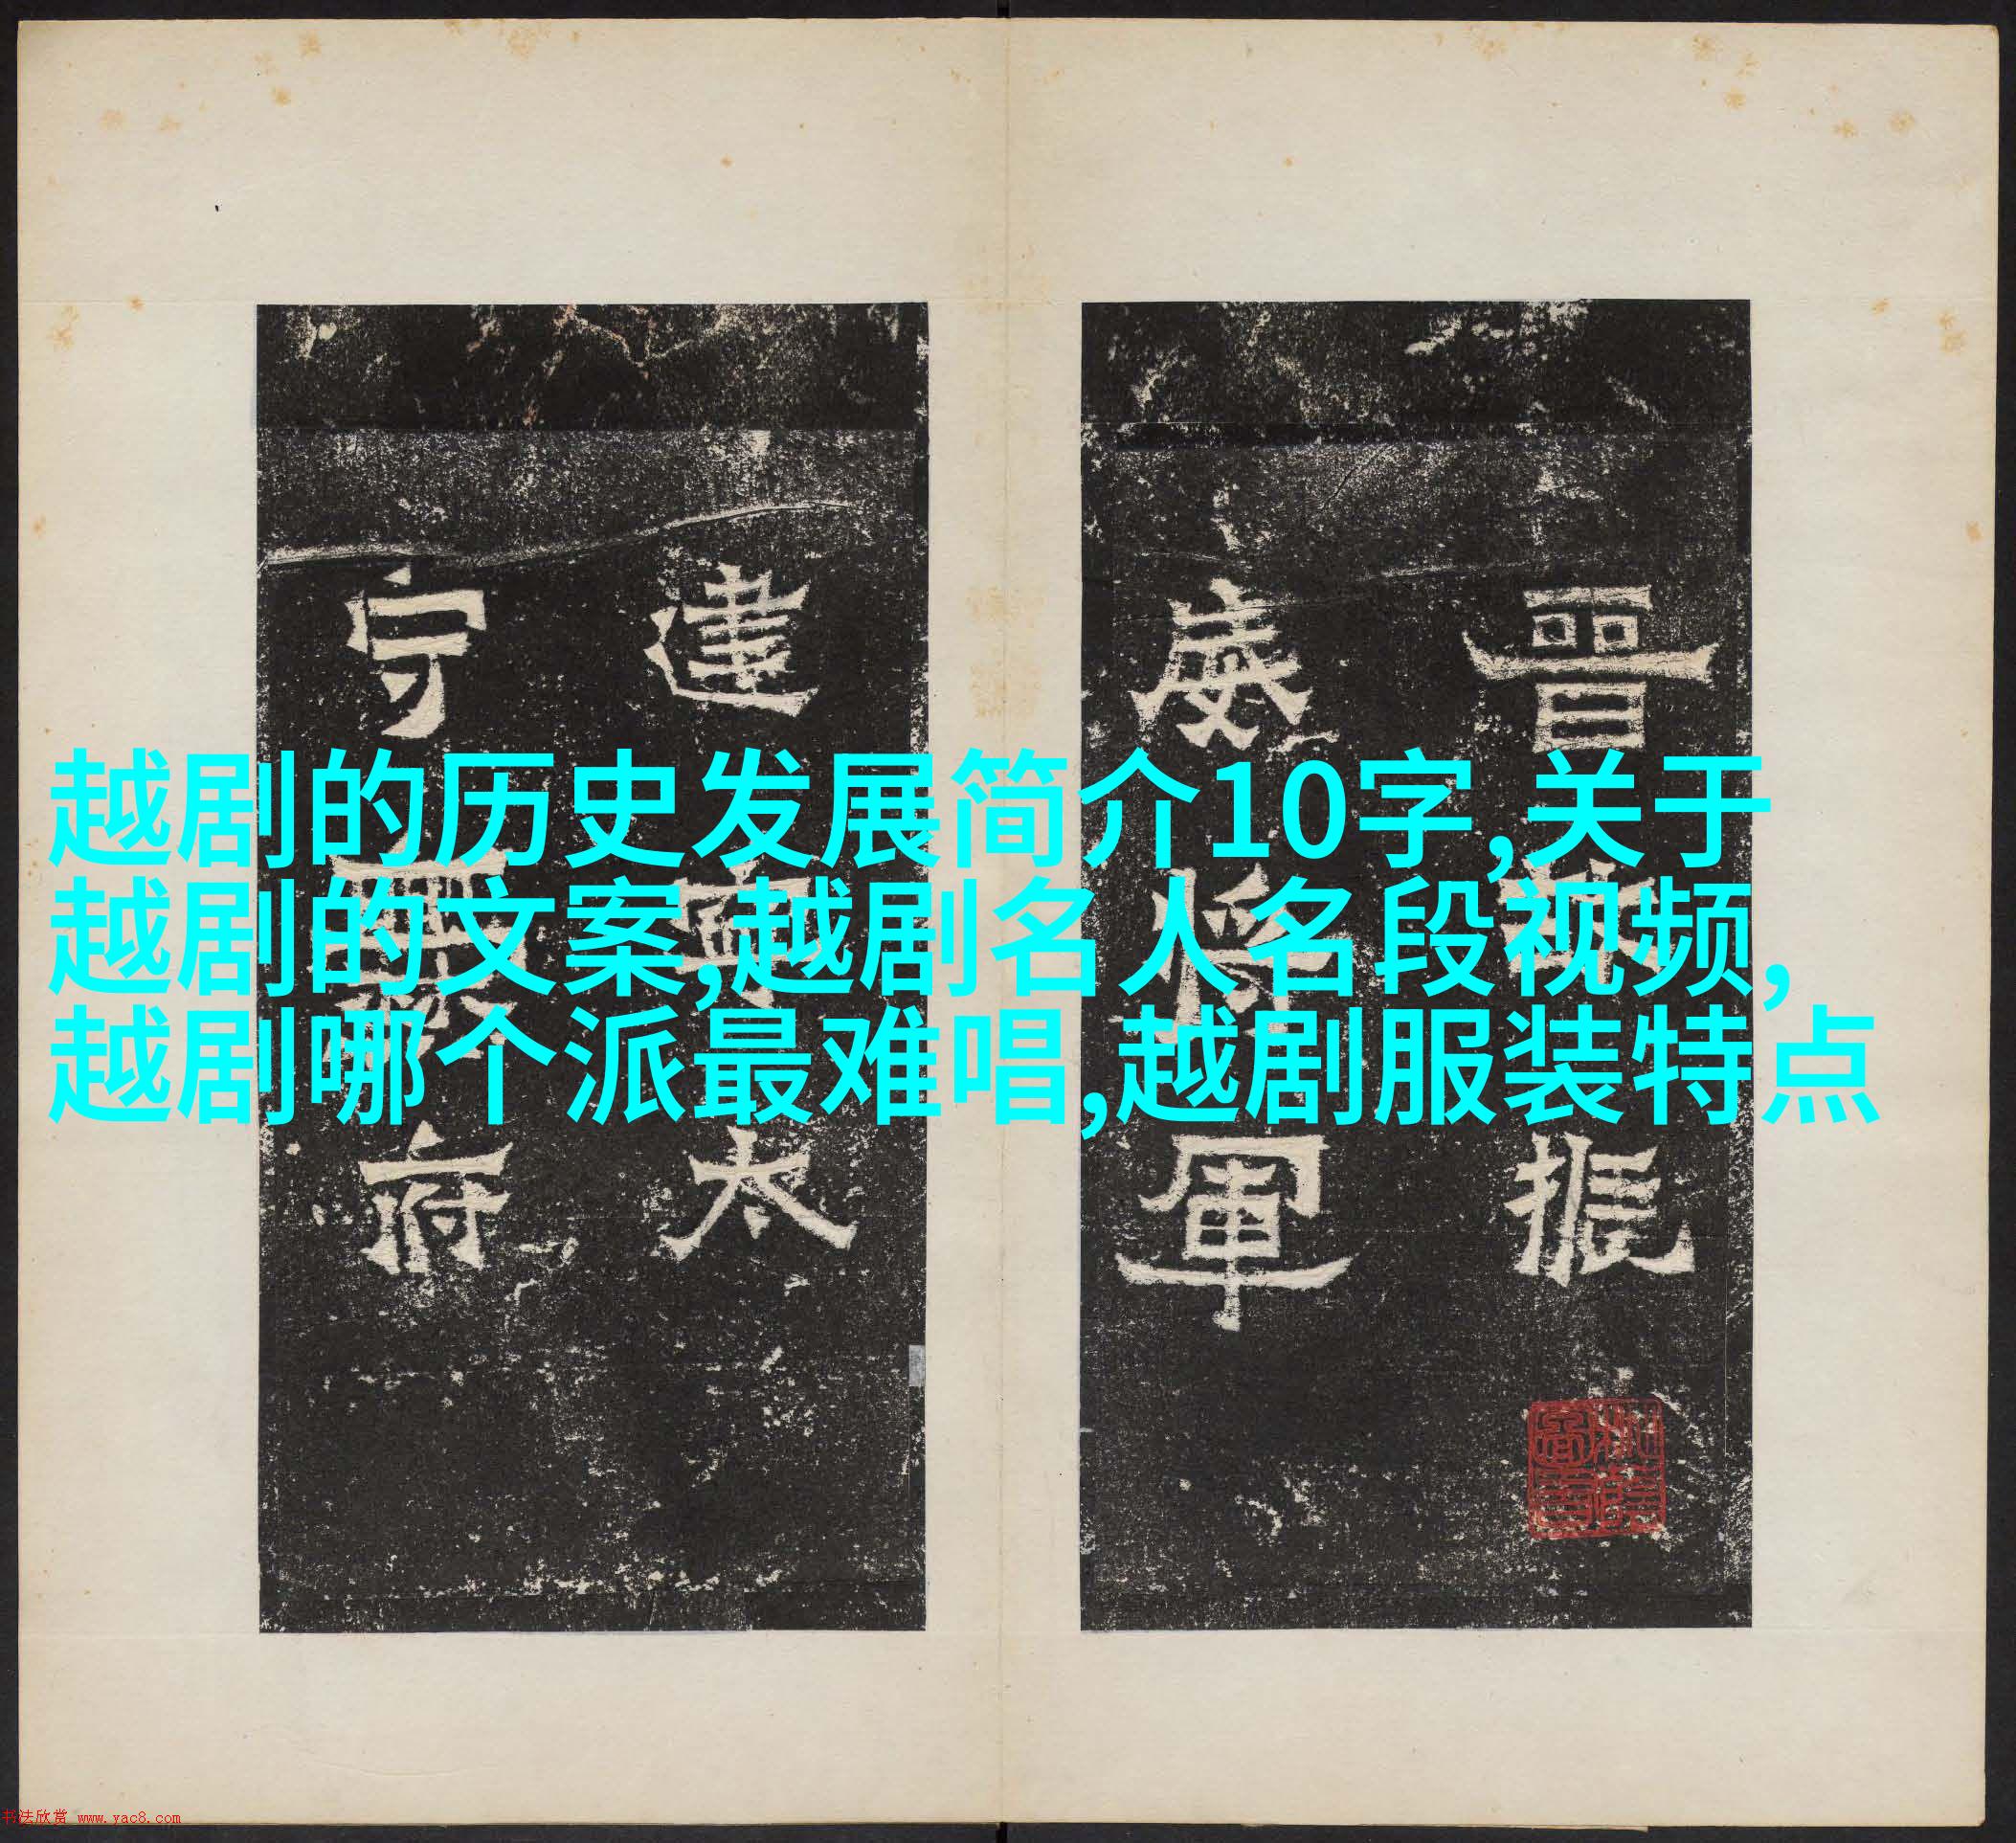 晉故振
威將軍
建寧太
守爨府
越剧的历史发展简介10字,关于
越剧的文案,越剧名人名段视频,
越剧哪个派最难唱,越剧服装特点
书法欣赏 www.yac8.com